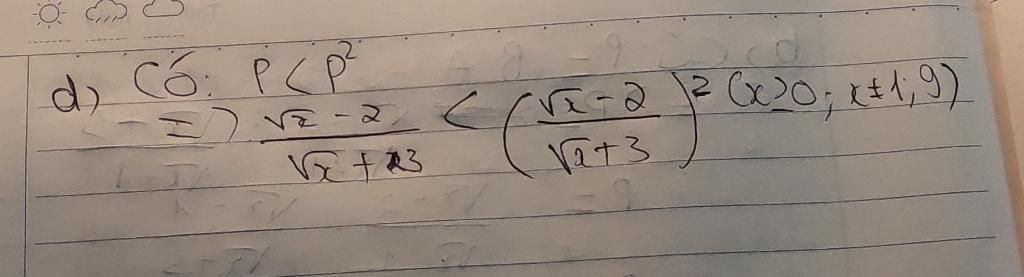 d) Có: P < P²
=> (√x - 2)/(√x + 3) < ((√x - 2)/(√x + 3))² (x ≥ 0; x ≠ 1; 9)